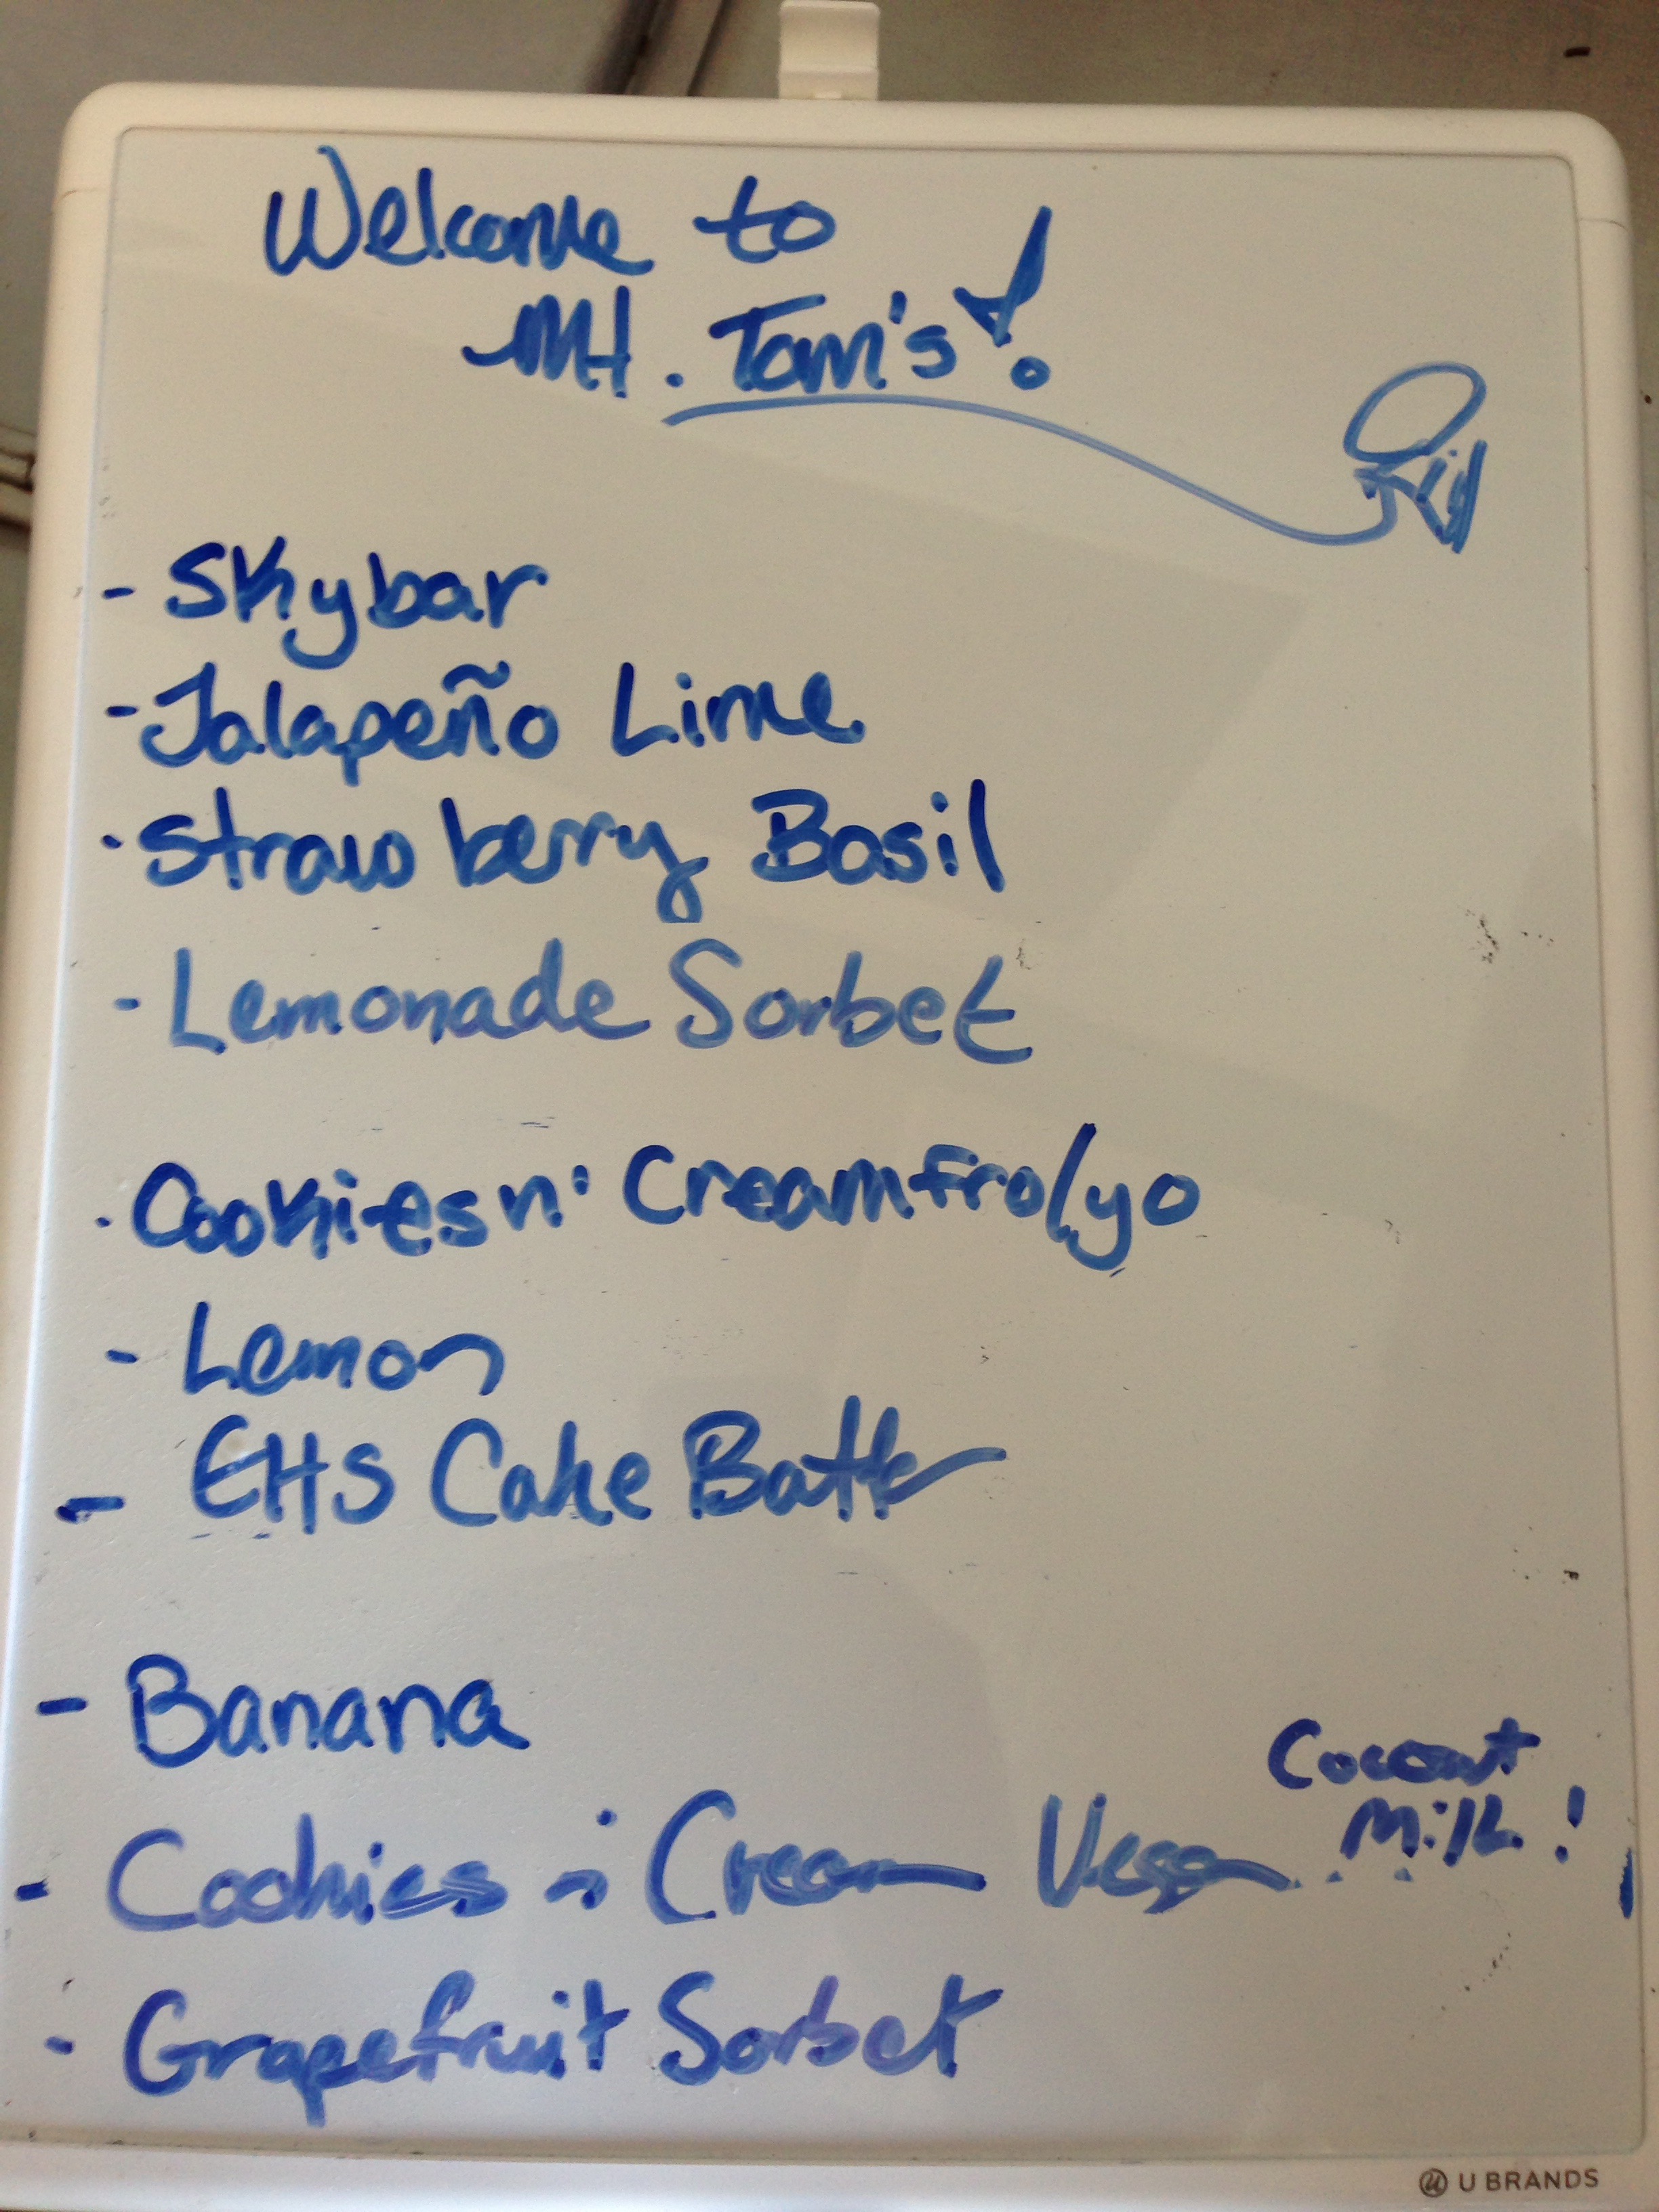 Welcome to
Mt. Tam's!
- Skybar
- Jalapeño Lime
- Strawberry Basil
- Lemonade Sorbet
- Cookies n' Cream fro/yo
- Lemon
- EHS Cake Batter
- Banana
- Cookies n' Cream Vegan... Coconut
Milk!
- Grapefruit Sorbet
U BRANDS